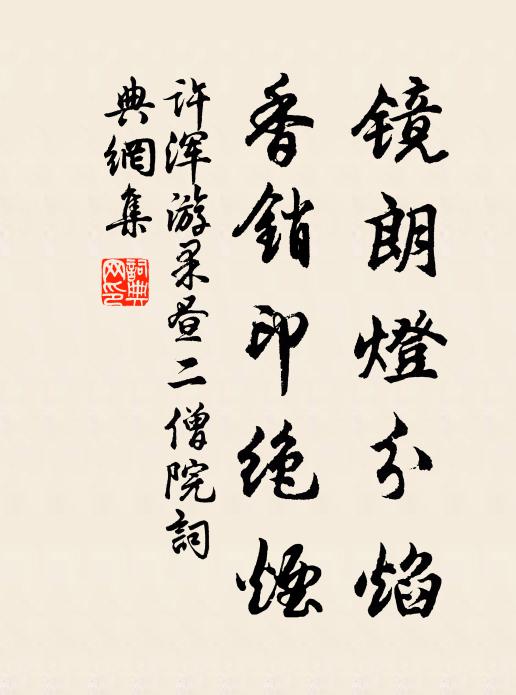 镜朗燈分焰
香銷印绝煙
许浑游果昼二僧院詞
典網集
詞典
网印